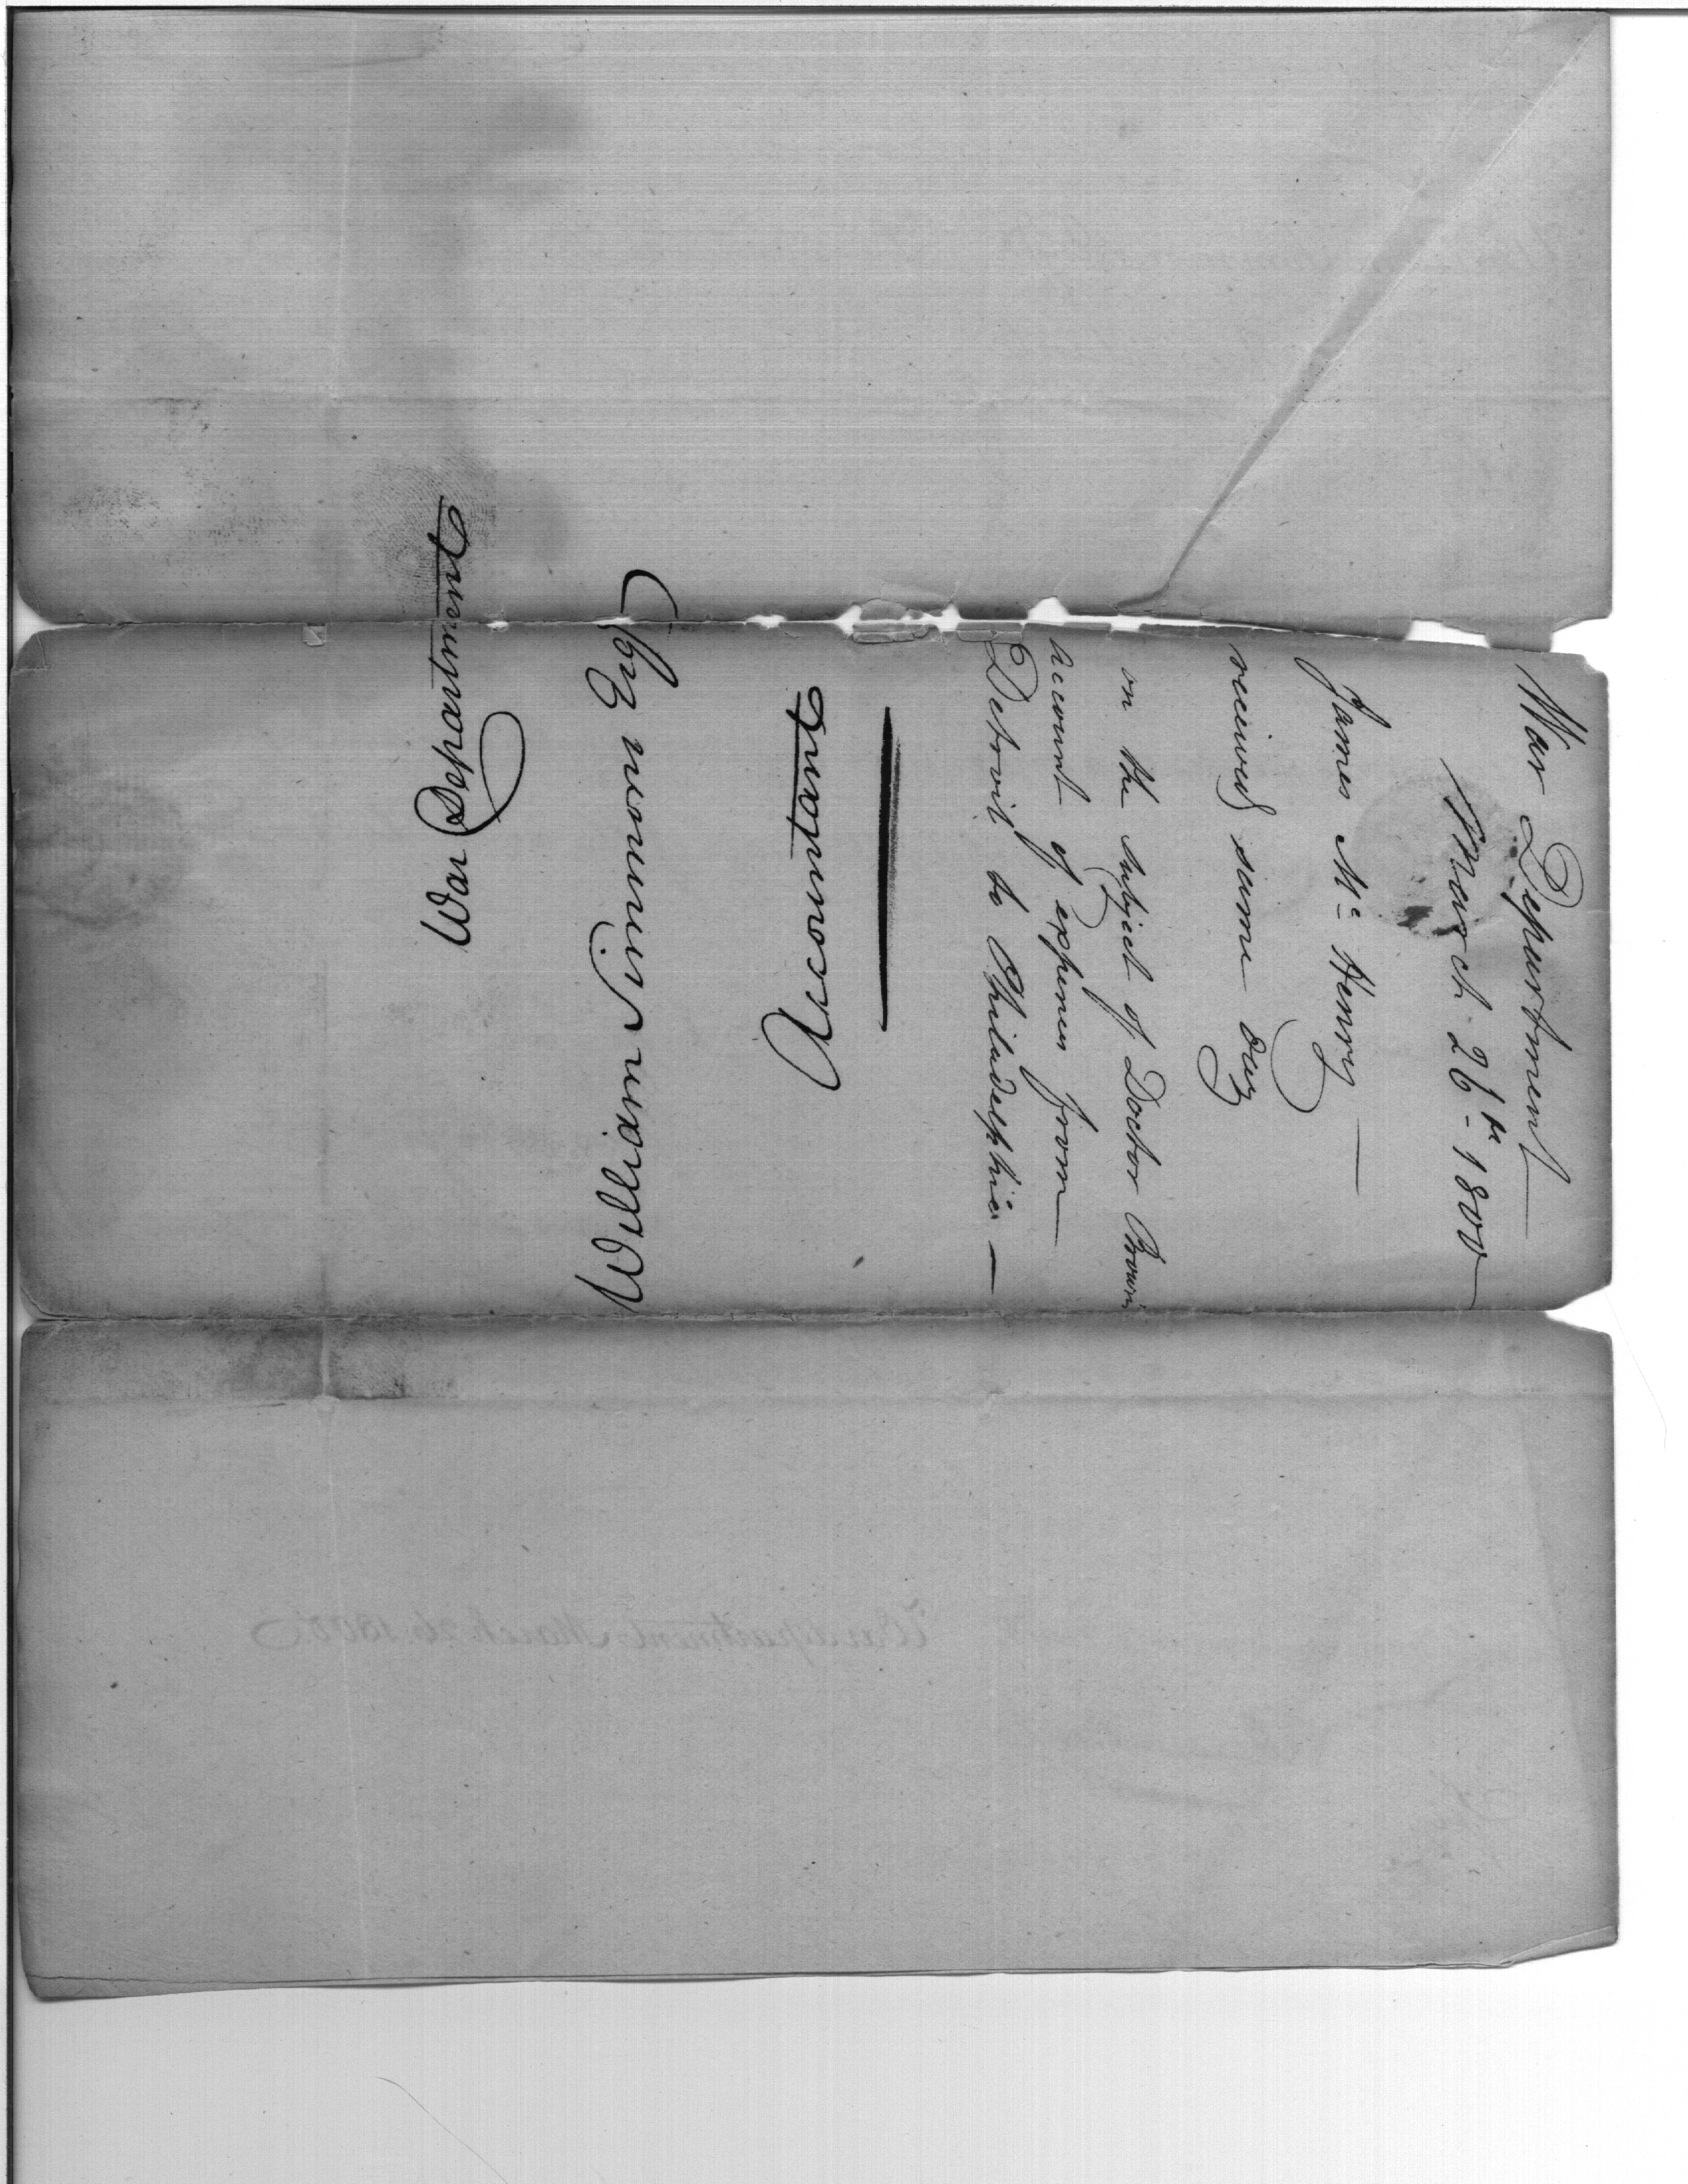 War Department
March 26th 1800
James Mc Henry
received same day
on the subject of Doctor Browns
account of expenses from
Detroit to Philadelphia
William Simmons Esqr
Accountant
War Department
War department March 26. 1800.